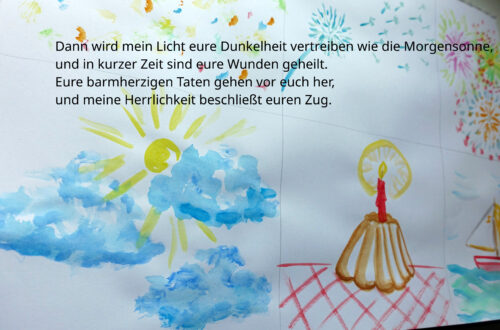 Dann wird mein Licht eure Dunkelheit vertreiben wie die Morgensonne,
und in kurzer Zeit sind eure Wunden geheilt.
Eure barmherzigen Taten gehen vor euch her,
und meine Herrlichkeit beschließt euren Zug.